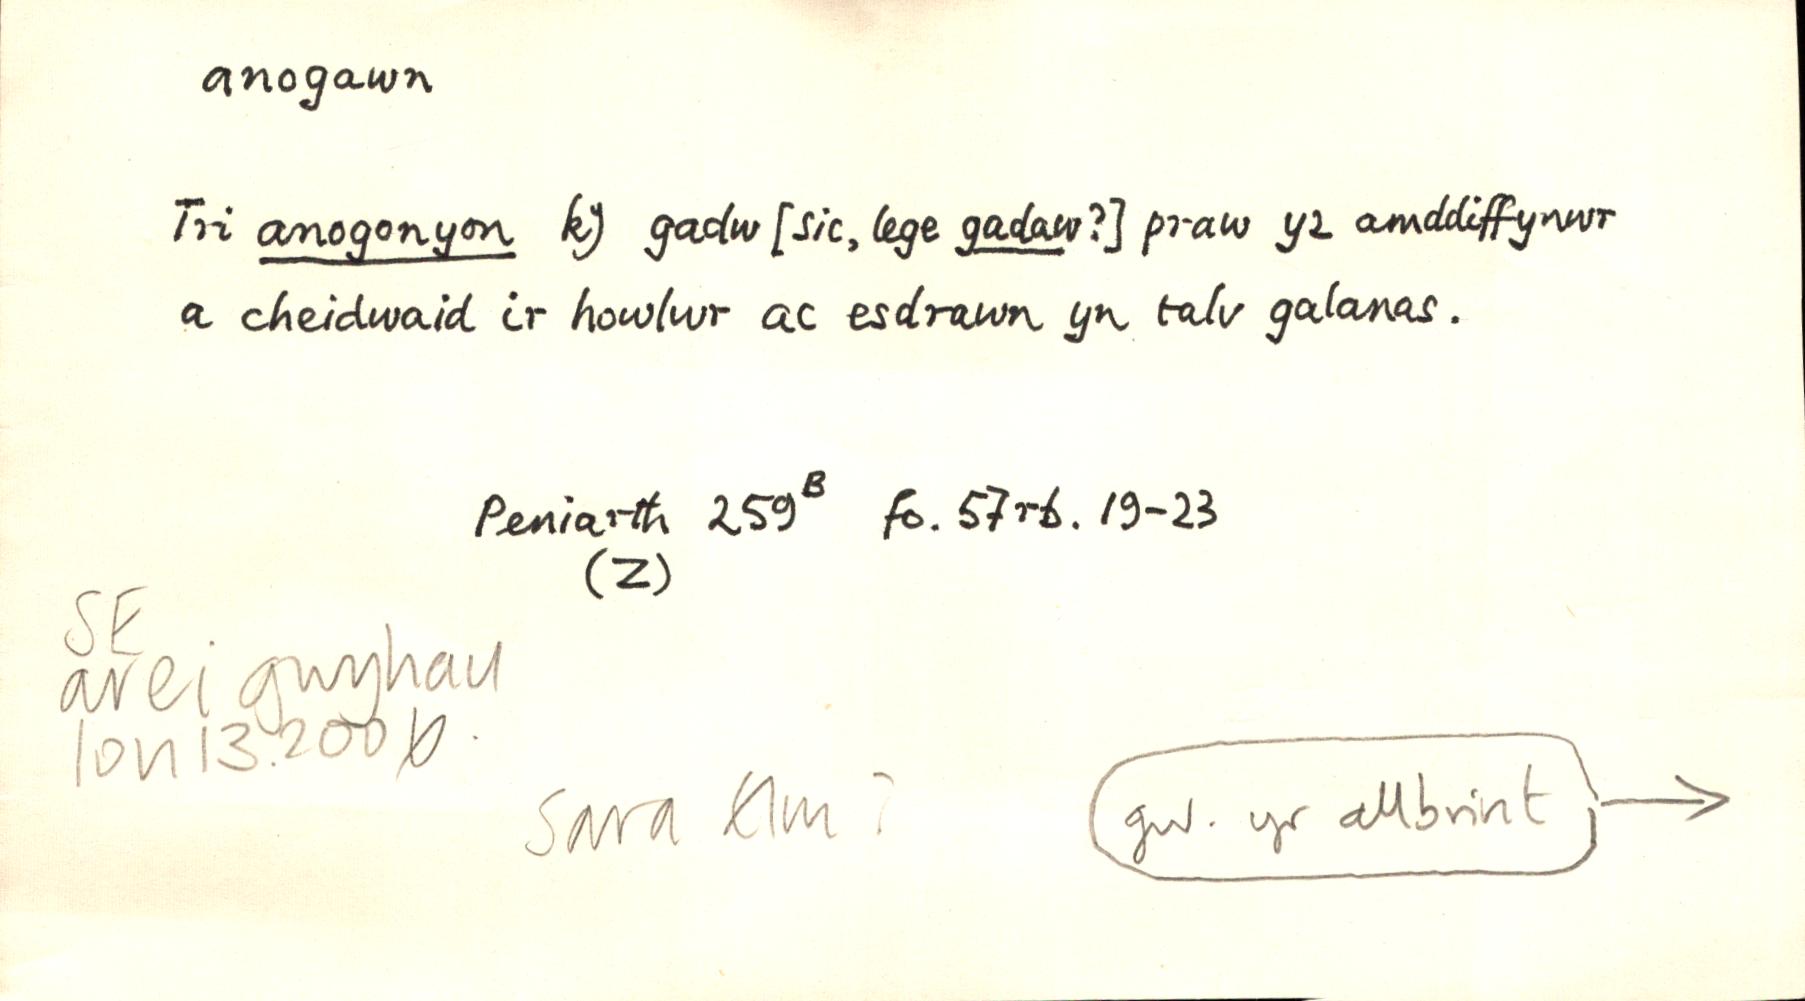 anogawn
Tri anogonyon kẏ gadw [sic, lege gadaw?] praw yꝛ amddiffynwr
a cheidwaid ir howlwr ac esdrawn yn talv galanas.
Peniarth 259ᴮ fo. 57rb. 19-23
(Z)
SE
arei gwyhau
Ion 13.200
Sara Elin?
gw. yr allbrint →